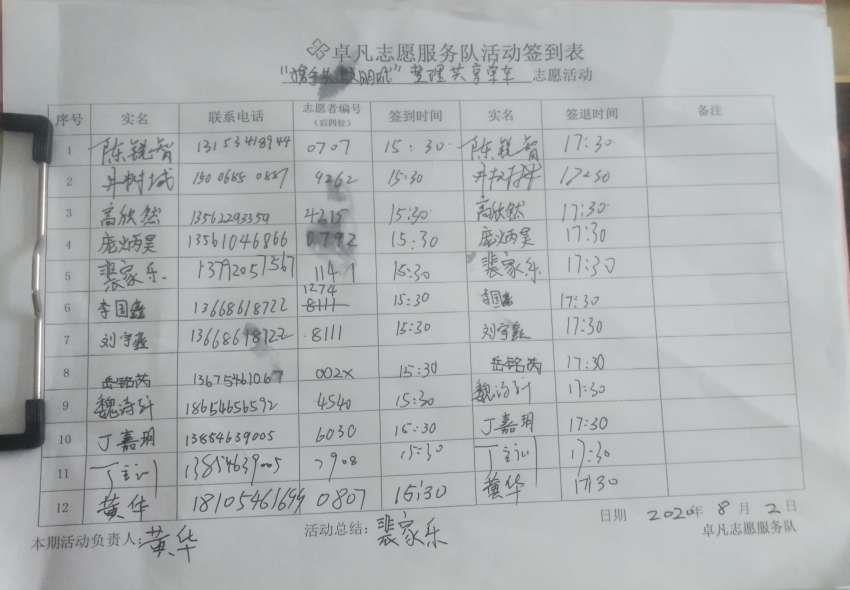 卓凡志愿服务队活动签到表
整理共享单车 志愿活动
序号 实名 联系电话 志愿者编号（后四位） 签到时间 实名 签退时间 备注
1 陈锐智 13153418944 0707 15:30 陈锐智 17:30
2 15:30
3 高欣然 13562293359 4215 15:30 高欣然 17:30
4 庞炳昊 13561046866 0792 15:30 庞炳昊 17:30
5 裴家乐 13792057567 1141 15:30 裴家乐 17:30
6 李国鑫 13668618722 1274 8111 15:30 李国鑫 17:30
7 刘宇鑫 13668618722 8111 15:30 刘宇鑫 17:30
8 岳铭芮 13675461067 002X 15:30 岳铭芮 17:30
9 魏 18654656592 4540 15:30 魏 17:30
10 丁嘉玥 13854639005 6030 15:30 丁嘉玥 17:30
11 丁 13854639005 7908 15:30 丁 17:30
12 黄华 18105461699 0807 15:30 黄华 17:30
日期 2020年8月2日
本期活动负责人:黄华 活动总结:裴家乐 卓凡志愿服务队